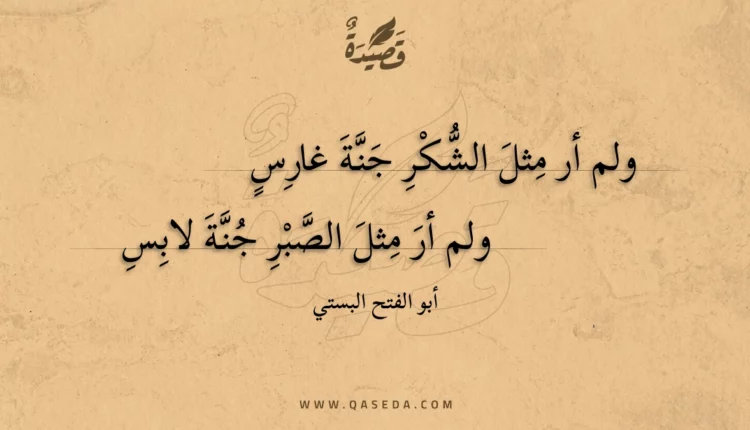 قَصِيْدَةٌ
ولم أر مِثلَ الشُّكْرِ جَنَّةَ غارِسٍ
ولم أرَ مِثلَ الصَّبْرِ جُنَّةَ لابِسِ
أبو الفتح البستي
WWW.QASEDA.COM